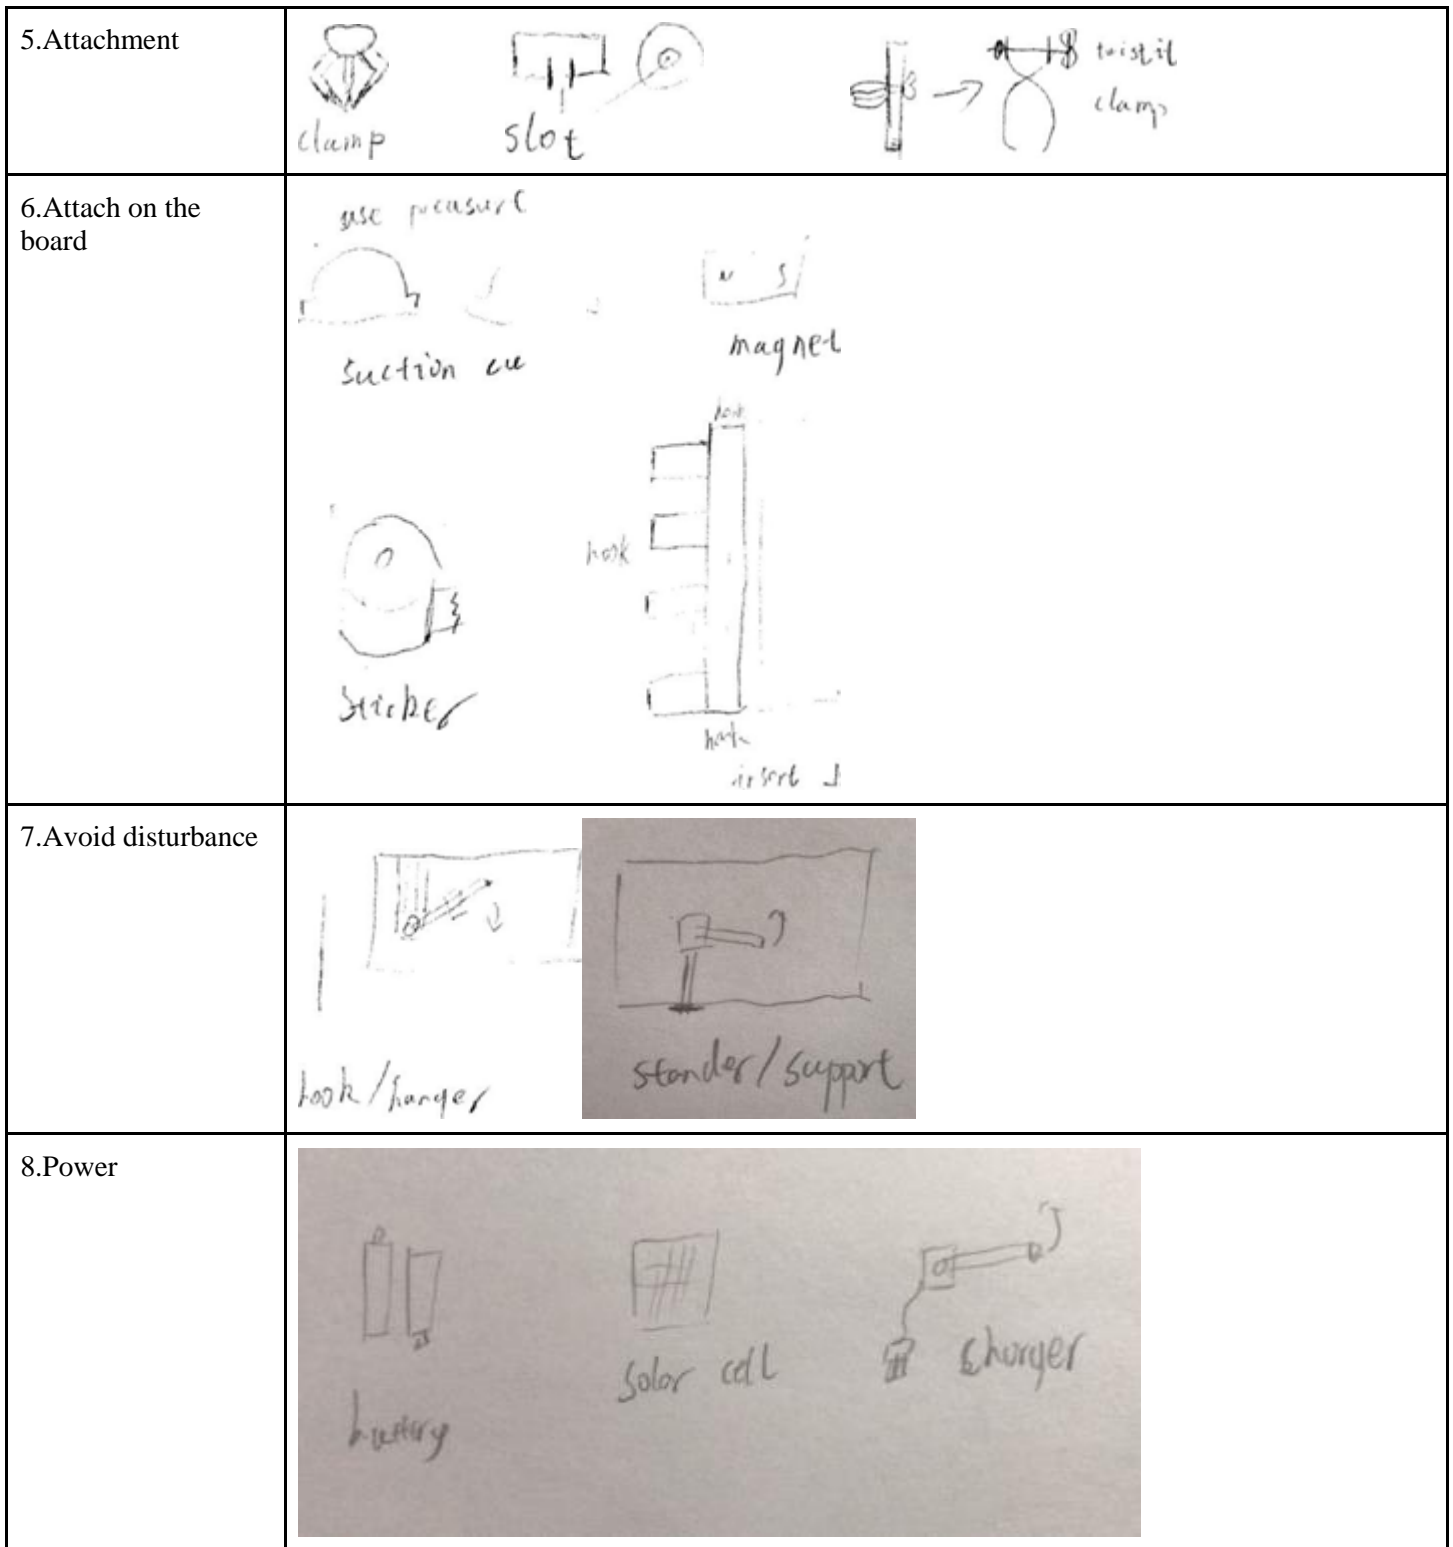 5.Attachment
clamp
slot
twist it
clamp
6.Attach on the
board
use preasure
suction cu
magnet
hook
hook
sticker
hook
insert
7.Avoid disturbance
hook/hanger
stander/support
8.Power
battery
solar cell
charger